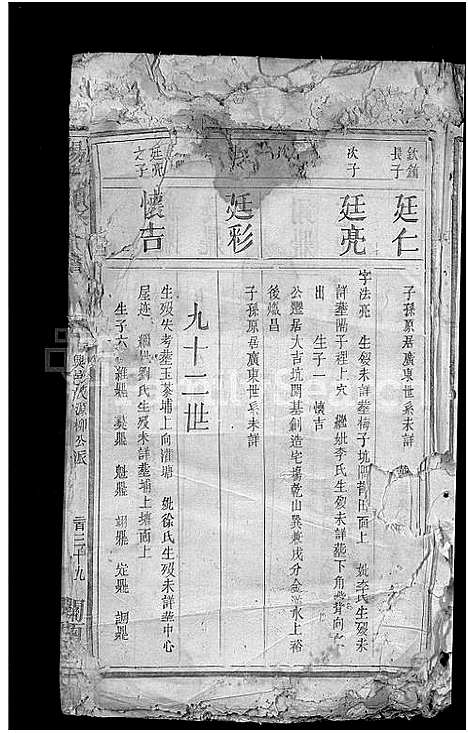 欽錦
長子
廷仁
子孫原居廣東世系未詳
次子
廷亮
字法亮 生歿未詳葬梅子坑 背田面上 妣李氏生歿未
詳葬陽子裡上穴 繼妣李氏生歿未詳葬下角 背向
出 生子一 懷吉
廷彩
公遷居大吉坑開基創造宅塲乾山巽兼戌分金 水上裕
後熾昌
子孫原居廣東世系未詳
九十二世
廷亮
之子
懷吉
生歿失考葬玉荖埔上向潽塘 妣徐氏生歿未詳葬中心
屋迯 繼妣劉氏生歿未詳葬埔上壙面上
生子六 雄鼎 奠鼎 魁鼎 翊鼎 定鼎 調鼎
興邑 源柳公派
一百三十九
關西